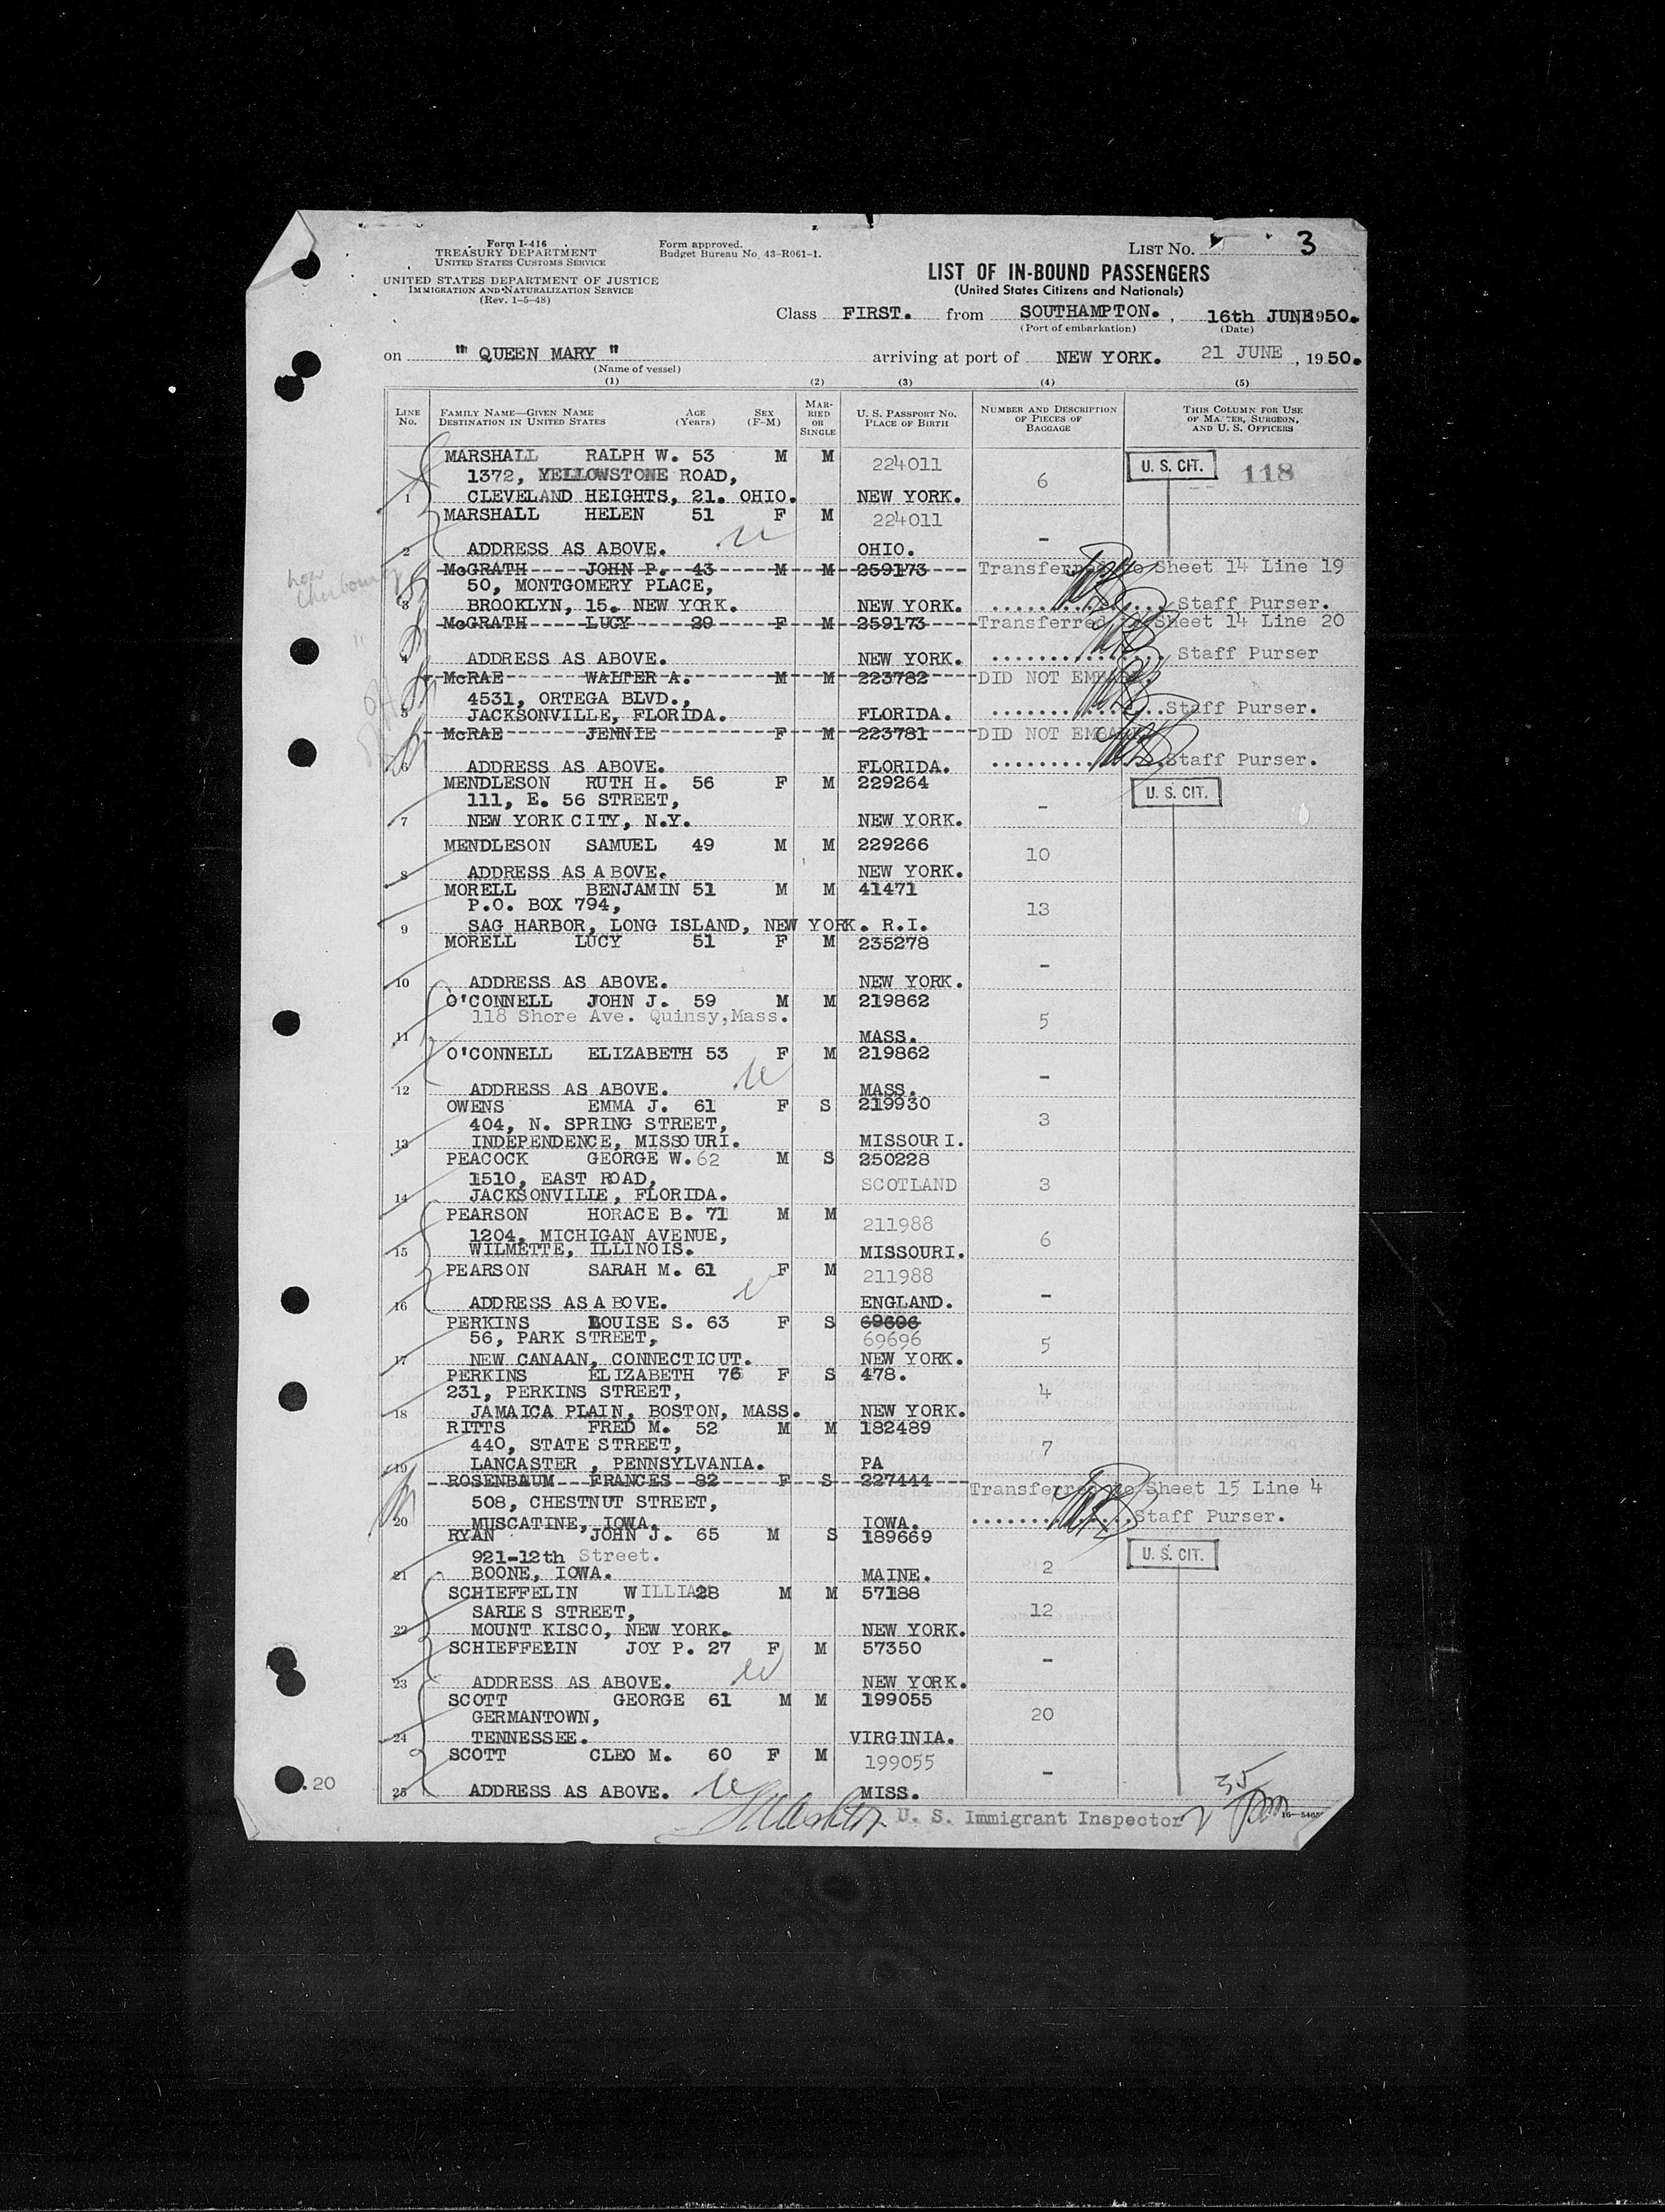 Form I-416
TREASURY DEPARTMENT
UNITED STATES CUSTOMS SERVICE
UNITED STATES DEPARTMENT OF JUSTICE
IMMIGRATION AND NATURALIZATION SERVICE
(Rev. 1-5-48)
Form approved.
Budget Bureau No. 43-R061-1.
LIST No. 3
LIST OF IN-BOUND PASSENGERS
(United States Citizens and Nationals)
Class FIRST. from SOUTHAMPTON. , 16th JUNE 1950.
(Port of embarkation) (Date)
on " QUEEN MARY " arriving at port of NEW YORK. 21 JUNE , 1950.
(Name of vessel)
(1) (2) (3) (4) (5)
LINE No. FAMILY NAME—GIVEN NAME DESTINATION IN UNITED STATES AGE (Years) SEX (F-M) MARRIED OR SINGLE U. S. PASSPORT No. PLACE OF BIRTH NUMBER AND DESCRIPTION OF PIECES OF BAGGAGE THIS COLUMN FOR USE OF MASTER, SURGEON, AND U. S. OFFICERS
MARSHALL RALPH W. 53 M M 224011 U. S. CIT. 118
1372, YELLOWSTONE ROAD, 6
1 CLEVELAND HEIGHTS, 21. OHIO. NEW YORK.
MARSHALL HELEN 51 F M 224011
-
2 ADDRESS AS ABOVE. OHIO.
McGRATH JOHN P. 43 M M 259173 Transferred to Sheet 14 Line 19
50, MONTGOMERY PLACE,
3 BROOKLYN, 15. NEW YORK. NEW YORK. Staff Purser.
McGRATH LUCY 29 F M 259173 Transferred to Sheet 14 Line 20
4 ADDRESS AS ABOVE. NEW YORK. Staff Purser
McRAE WALTER A. M M 223782 DID NOT EMBARK.
4531, ORTEGA BLVD.,
5 JACKSONVILLE, FLORIDA. FLORIDA. Staff Purser.
McRAE JENNIE F M 223781 DID NOT EMBARK
6 ADDRESS AS ABOVE. FLORIDA. Staff Purser.
MENDLESON RUTH H. 56 F M 229264 U. S. CIT.
111, E. 56 STREET, -
7 NEW YORK CITY, N.Y. NEW YORK.
MENDLESON SAMUEL 49 M M 229266
10
8 ADDRESS AS ABOVE. NEW YORK.
MORELL BENJAMIN 51 M M 41471
P.O. BOX 794, 13
9 SAG HARBOR, LONG ISLAND, NEW YORK. R.I.
MORELL LUCY 51 F M 235278
-
10 ADDRESS AS ABOVE. NEW YORK.
O'CONNELL JOHN J. 59 M M 219862
118 Shore Ave. Quinsy,Mass. 5
11 MASS.
O'CONNELL ELIZABETH 53 F M 219862
-
12 ADDRESS AS ABOVE. MASS.
OWENS EMMA J. 61 F S 219930
404, N. SPRING STREET, 3
13 INDEPENDENCE, MISSOURI. MISSOURI.
PEACOCK GEORGE W. 62 M S 250228
1510, EAST ROAD, SCOTLAND 3
14 JACKSONVILLE, FLORIDA.
PEARSON HORACE B. 71 M M 211988
1204, MICHIGAN AVENUE, 6
15 WILMETTE, ILLINOIS. MISSOURI.
PEARSON SARAH M. 61 F M 211988
-
16 ADDRESS AS ABOVE. ENGLAND.
PERKINS LOUISE S. 63 F S 69696
56, PARK STREET, 69696 5
17 NEW CANAAN, CONNECTICUT. NEW YORK.
PERKINS ELIZABETH 76 F S 478.
231, PERKINS STREET, 4
18 JAMAICA PLAIN, BOSTON, MASS. NEW YORK.
RITTS FRED M. 52 M M 182489
440, STATE STREET, 7
19 LANCASTER , PENNSYLVANIA. PA
ROSENBAUM FRANCES 82 F S 227444 Transferred to Sheet 15 Line 4
508, CHESTNUT STREET,
20 MUSCATINE, IOWA. IOWA. Staff Purser.
RYAN JOHN J. 65 M S 189669 U. S. CIT.
921-12th Street. 2
21 BOONE, IOWA. MAINE.
SCHIEFFELIN WILLIAM 28 M M 57188
SARLES STREET, 12
22 MOUNT KISCO, NEW YORK. NEW YORK.
SCHIEFFELIN JOY P. 27 F M 57350
-
23 ADDRESS AS ABOVE. NEW YORK.
SCOTT GEORGE 61 M M 199055
GERMANTOWN, 20
24 TENNESSEE. VIRGINIA.
SCOTT CLEO M. 60 F M 199055
-
25 ADDRESS AS ABOVE. MISS.
.20
U. S. Immigrant Inspector
35